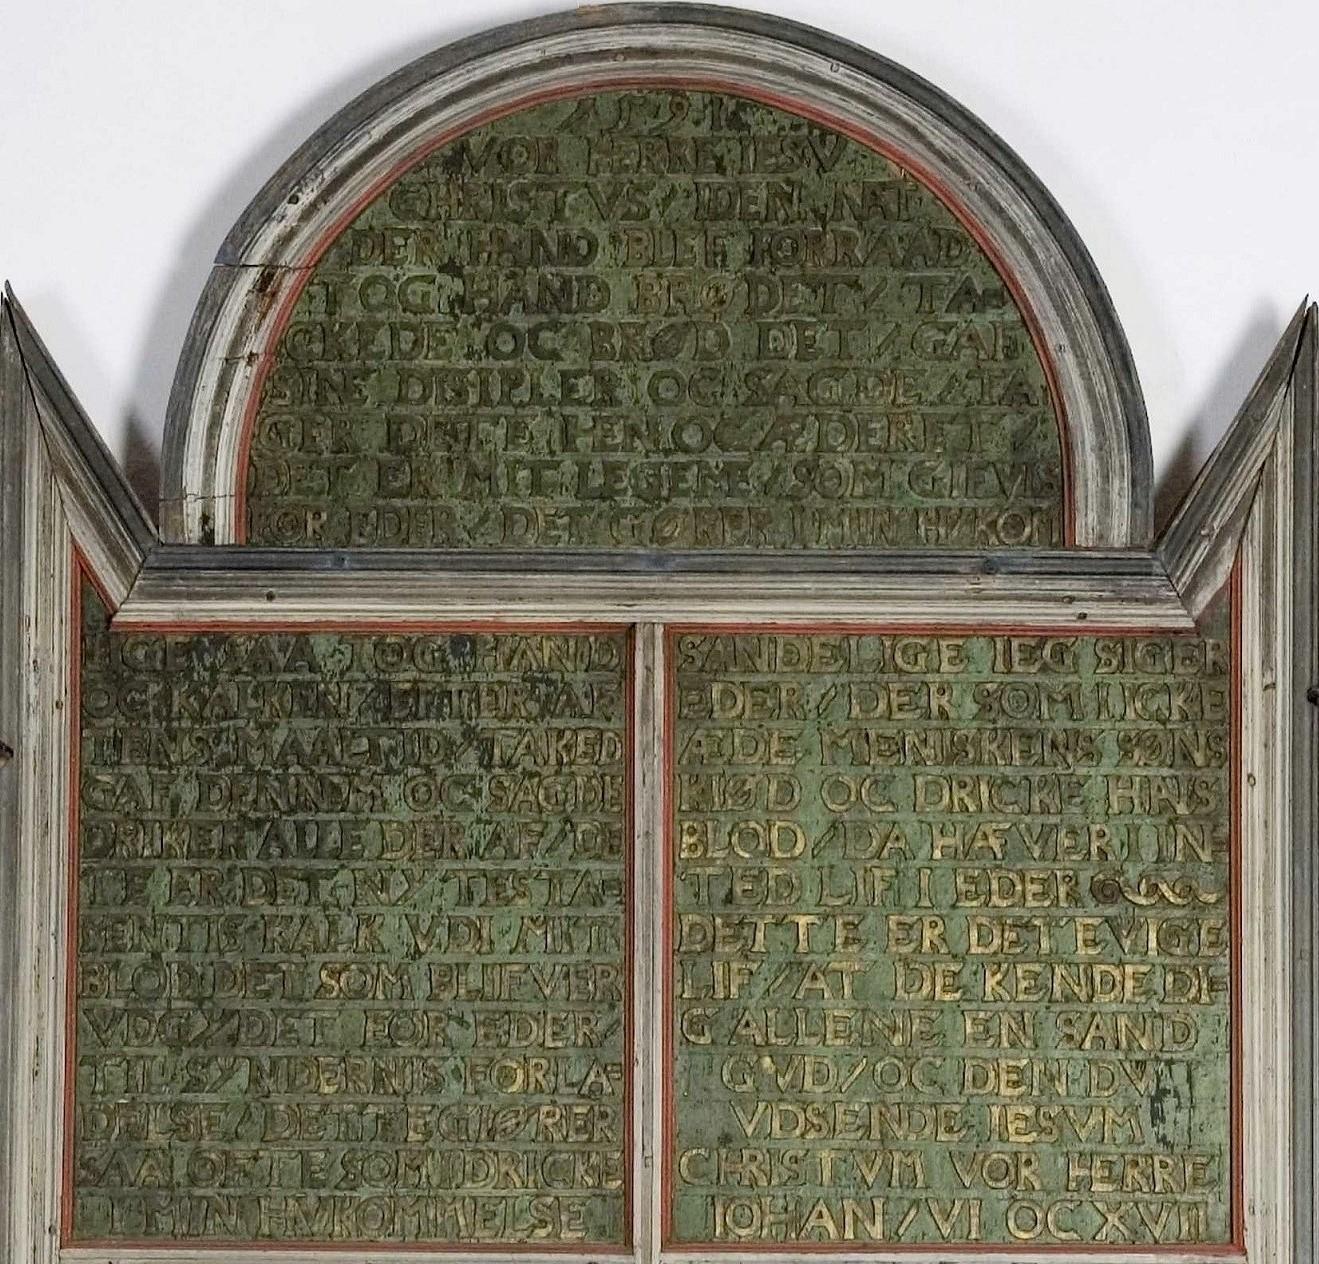 1591
VOR HERRE IESV
CHRISTVS/ IDEN NAT
DER HAND BLEF FORRAAD
ET TOG HAND BRØDET/ TA
CKEDE OC BRØD DET/ GAF
SINE DISIPLER OG SAGDE/ TA
GER DETTE HEN OC ÆDER ET/
DET ER MIT LEGEME/ SOM GIEVIS
FOR EDER/ DET GIØRER I MIN HVKOM
TOG HAND
OG KALKEN/ EFTER AF
TENS MAALTID/ TAKED
GAF DENNOM OC SAGDE
DRIKER ALLE DER AF/ DE
TE ER DET NY TESTA
MENTIS KALK VDI MIT
BLOD DET SOM BLIFVER
VDG/ DET FOR EDER/
TIL SYNDERNIS FORLA
DELSE/ DETTE GIØRER
SAA OFTE SOM I DRICKE
I MIN HVKOMMELSE
SANDELIGE IEG SIGER
EDER/ DER SOM I ICKE
ÆDE MENISKENS SØNS
KIØD OC DRICKE HANS
BLOD/ DA HÆVER I IN
TED LIF I EDER
DETTE ER DET EVIGE
LIF/ AT DE KENDE DI
G ALLENE EN SAND
GVD/ OC DEN DV
VDSENDE IESVM
CHRISTVM VOR HERRE
IOHAN/ VI OC XVII